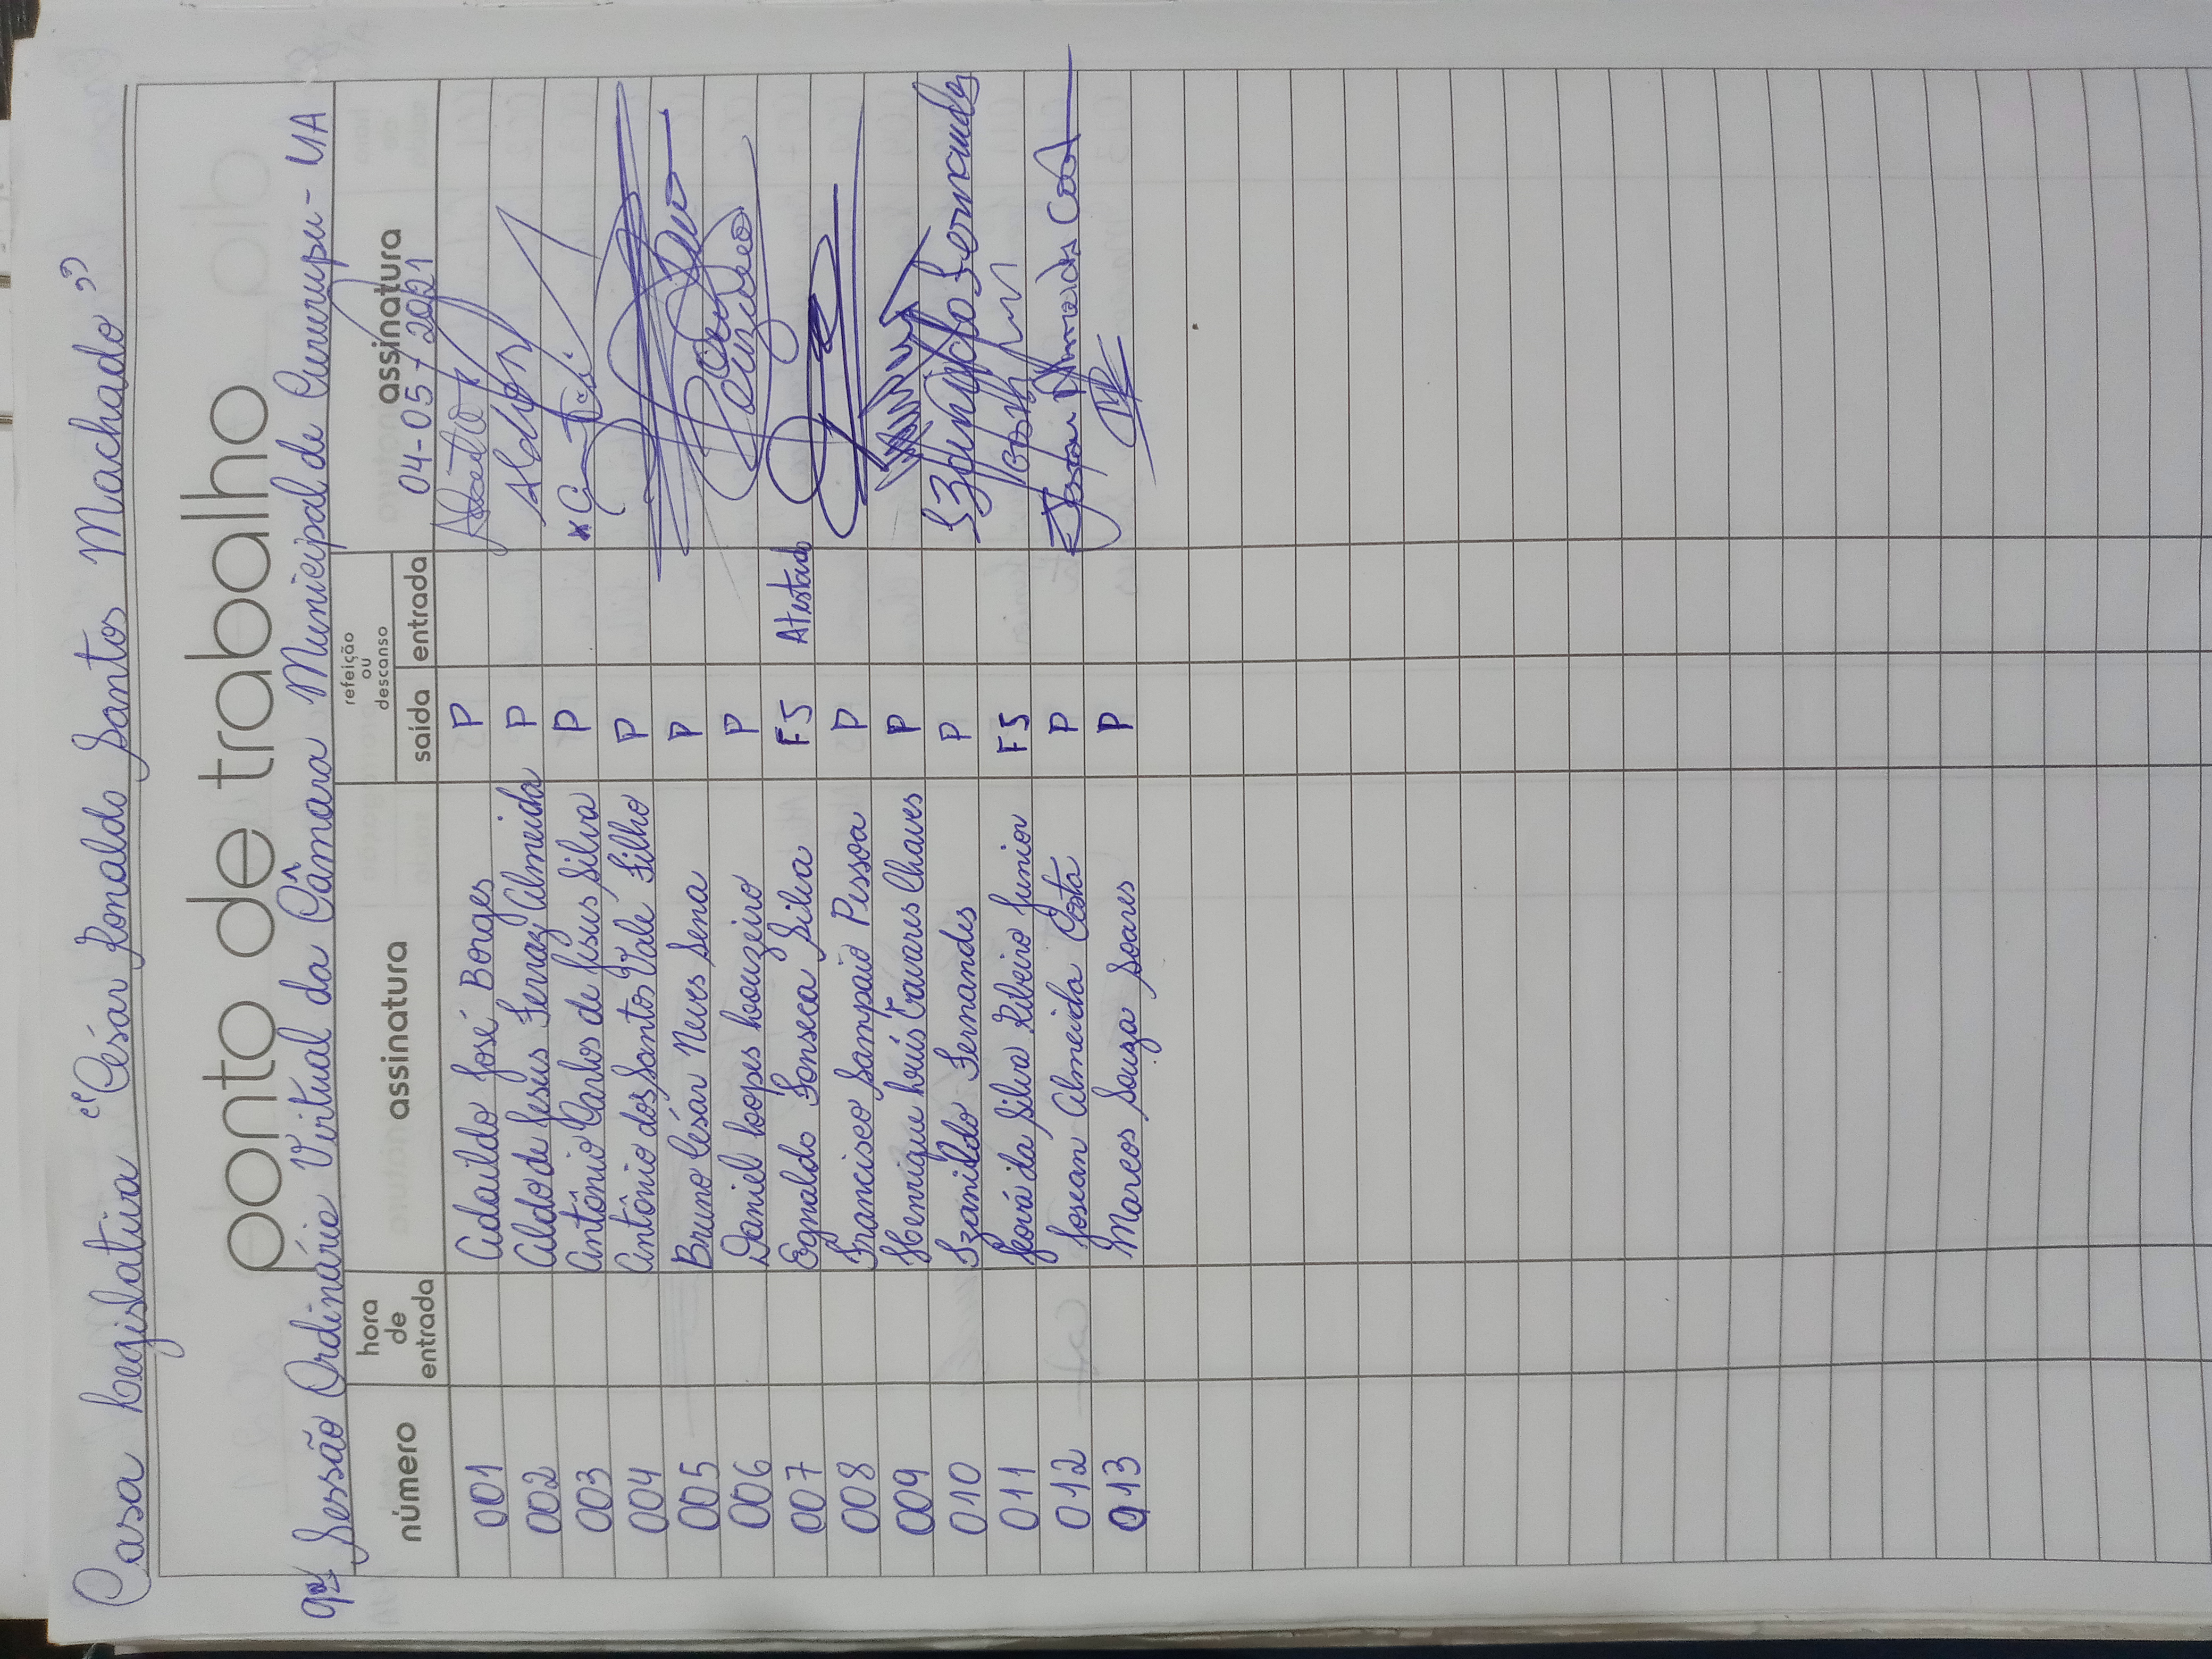 Casa Legislativa "César Ronaldo Santos Machado"
ponto de trabalho
9ª Sessão Ordinária Virtual da Câmara Municipal de Cururupu - MA
número hora de entrada assinatura refeição ou descanso saída entrada assinatura
04-05-2021
001 Adaildo José Borges P
002 Aldo de Jesus Ferraz Almeida P
003 Antônio Carlos de Jesus Silva P
004 Antônio dos Santos Vale Filho P
005 Bruno César Neves Sena P
006 Daniel Lopes Louzeiro P Louzeiro
007 Egnaldo Fonseca Silva FJ Atestado
008 Francisco Sampaio Pessoa P
009 Henrique Luís Tavares Chaves P
010 Izanildo Fernandes P Izanildo Fernandes
011 Jeová da Silva Ribeiro Junior FJ
012 Josean Almeida Costa P Josean Almeida Costa
013 Marcos Souza Soares P